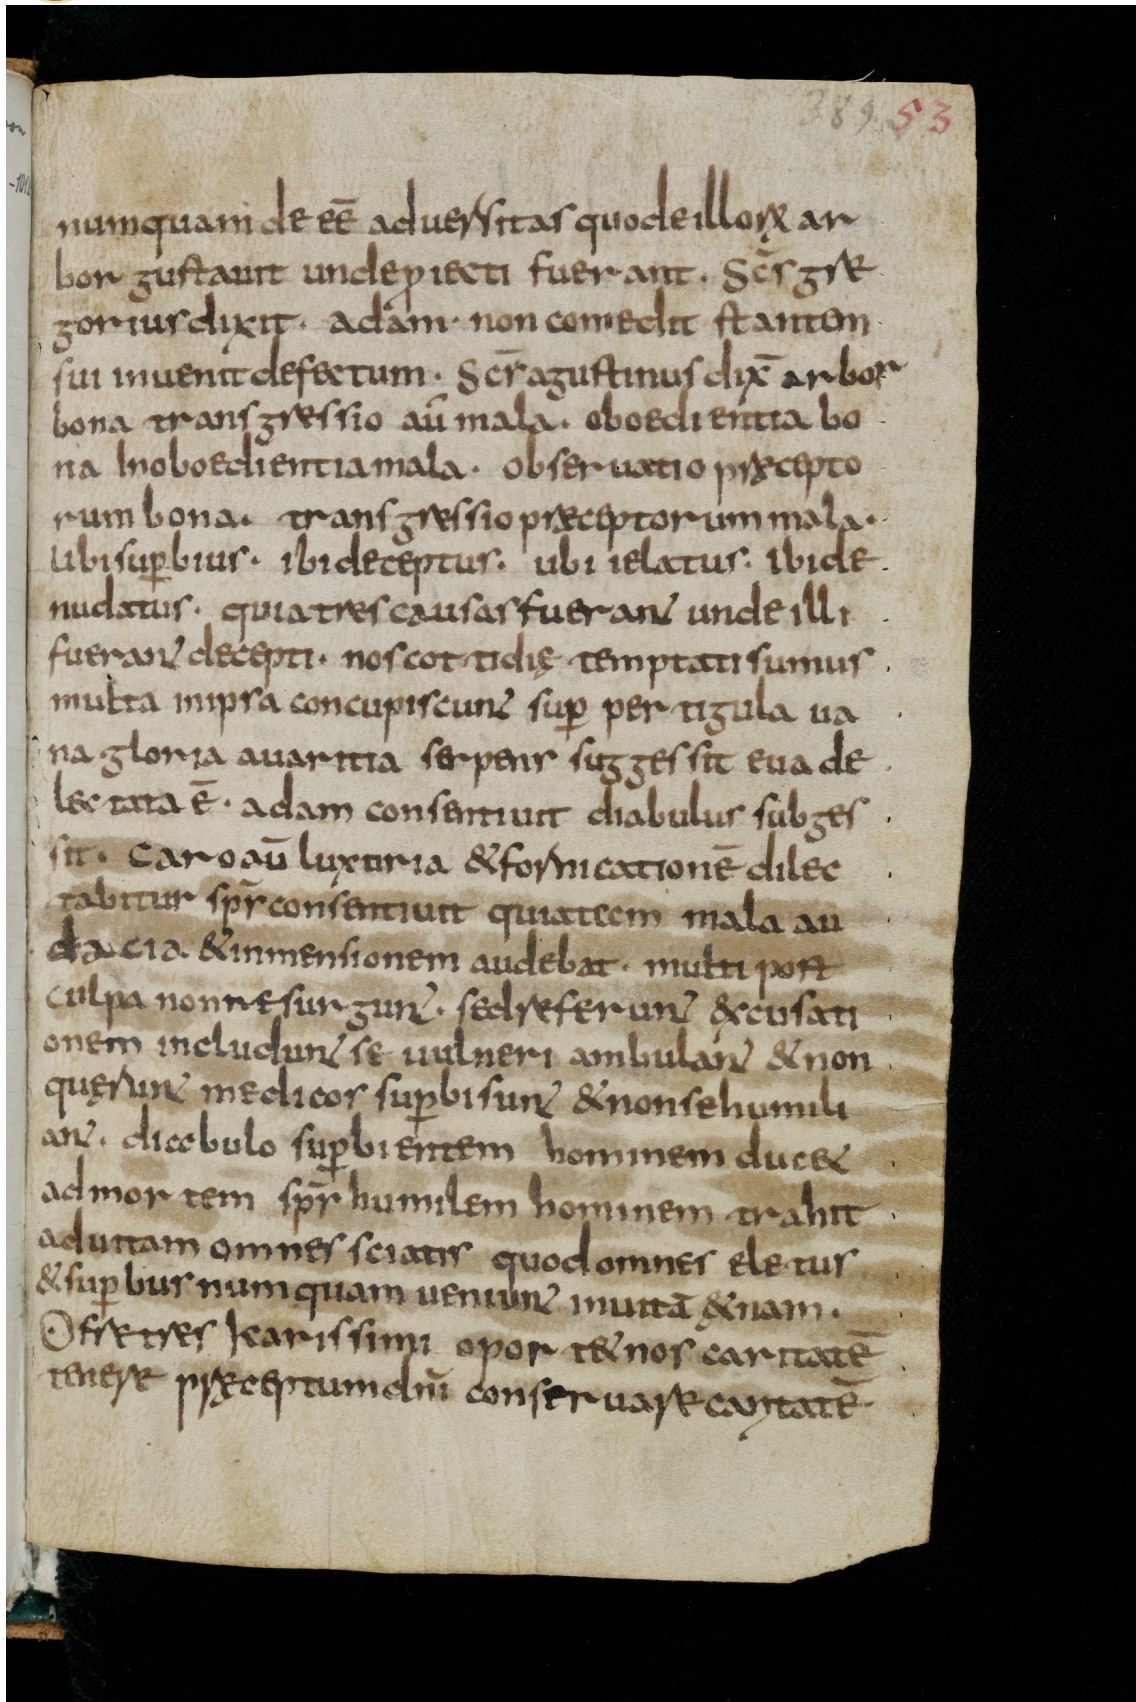 389 53
numquam de eē aduersitas quode illorꝝ ar
bor gustauit unde ꝓiecti fuerant. Sc̄s gre
gorius dixit. adam. non comedit stantem
sui inuenit defectum. Sc̄s agustinus dix̄ arbor
bona transgressio aū mala. oboedientia bo
na Inoboedientia mala. obseruatio precepto
rum bona. transgressio preceptorum mala.
Ubi suꝑbius. ibi deceptus. ubi ielatus. Ibi de
nudatus. quia tres causas fuerant unde illi
fuerant decepti. nos cottidię temptati sumus
multa in ipsa concupiscunt suꝑ per tigula ua
na gloria auaritia serpens suggessit eua de
lectata ē. adam consentiuit diabulus subges
sit. Caro aū luxuria & fornicationē dilec
tabitur sps̄ consentiuit quia tecm mala au
dacia & inmensionem audebat. multi post
culpa non resurgunt. sed referunt excusati
onem includunt se uulneri ambulant & non
quęrunt medicos suꝑbi sunt & non se humili
ant. diabulo suꝑbientem hominem ducet
ad mortem sps̄ humilem hominem trahit
ad uitam omnes sciatis quod omnes eletus
& suꝑbus numquam ueniunt in uitā &nam.
O fretres karissimi oportet nos caritatē
tenere preceptum dn̄i conseruare caritatē